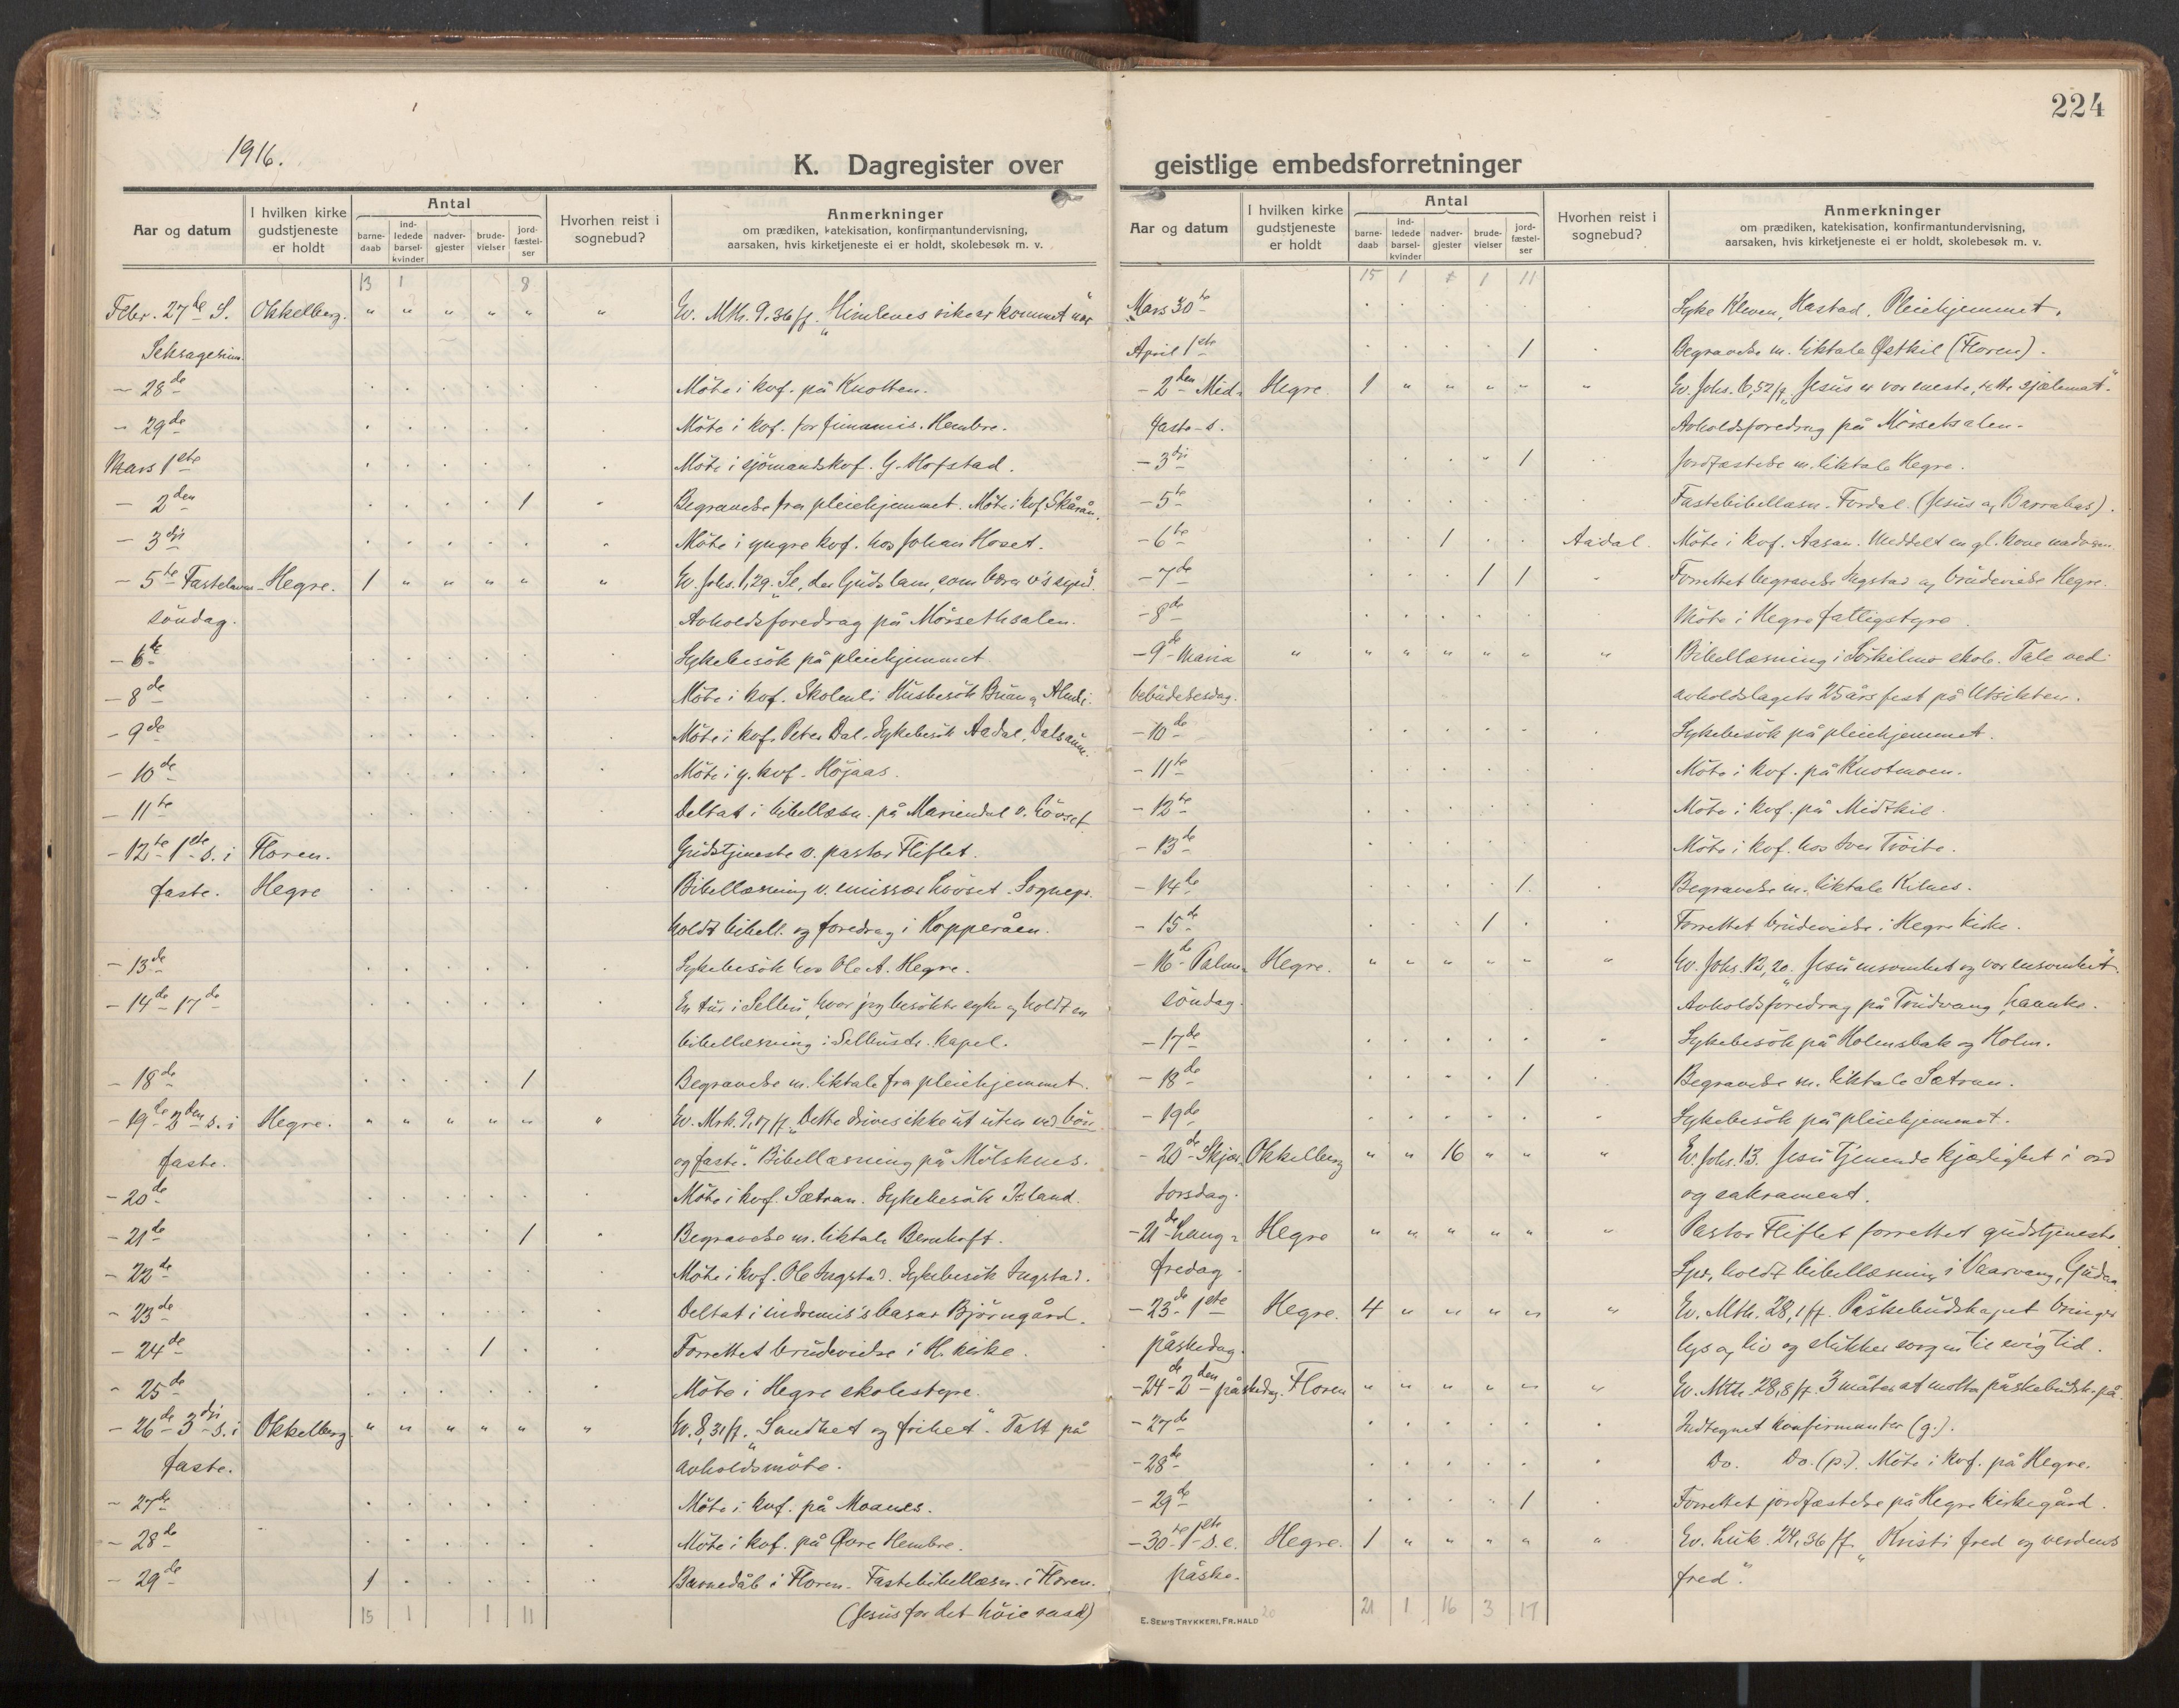 224
1916.
K. Dagregister over geistlige embedsforretninger
Aar og datum
I hvilken kirke gudstjeneste er holdt
Antal
barne-daab
ind-ledede barsel-kvinder
nadver-gjester
brude-vielser
jord-fæstel-ser
Hvorhen reist i sognebud?
Anmerkninger
om prædiken, katekisation, konfirmantundervisning,
aarsaken, hvis kirketjeneste ei er holdt, skolebesøk m. v.
13 1 8
Febr. 27de S. Okkelberg. " " " " " " Ev. Mth. 9,36 ff. "Himlenes rike er kommet nær"
Seksagesima
- 28de Möte i kvf. på Knotten.
- 29de Möte i kvf. for finnemis. Hembre.
Mars 1ste Möte i sjömandskvf. G. Hofstad.
- 2den 1 Begravelse fra pleiehjemmet. Möte i kvf.
- 3dje Möte i yngre kvf. hos Johan Hoset.
- 5te Fastelavns- Hegre. 1 " " " " " Ev. Johs. 1,29. "Se, det Guds lam, som bærer v's synd."
söndag. Avholdsforedrag på Mörsethsalen.
- 6te Sykebesök på pleiehjemmet
- 8de Möte i kvf. Skolenli Husbesök
- 9de Möte i kvf. Peter Dal. Sykebesök Aadal,
- 10de Möte i y. kvf. Höjaas.
- 11te Deltat i bibellæsn. på Mariendal v. Lövset
- 12te 1ste s. i Floren. Gudstjeneste v. pastor Fliflet.
faste. Hegre Bibellæsning v. emissær Lövset. Sognepr.
holdt bibell. og foredrag i Kopperåen.
- 13de Sykebesök hos Ole A. Hegre.
- 14de - 17de En tur i Selbu, hvor jeg besökte syke og holdt en
bibellæsning i Selbustr. kapel.
- 18de 1 Begravelse m. liktale fra pleiehjemmet.
- 19de 2den s. i Hegre. " " " " " " Ev. Mrk. 9,17 ff. "Dette drives ikke ut uten ved bön
faste. og faste." Bibellæsning på Mölsknes.
- 20de Möte i kvf. Sætran. Sykebesök Island.
- 21de 1 Begravelse m. liktale Bernhoft.
- 22de Möte i kvf. Ole Ingstad. Sykebesök Ingstad.
- 23de Deltat i indremis's basar Björngård.
- 24de 1 Forrettet brudevielse i H. kirke.
- 25de Möte i Hegre skolestyre.
- 26de 3dje s. i Okkelberg " " " " " " Ev. 8,31 ff. "Sandhet og frihet". Talt på
faste. avholdsmöte.
- 27de Möte i kvf. på Moanes.
- 28de Möte i kvf. på Övre Hembre.
- 29de 1 Barnedåb i Floren. Fastebibellæsn. i Floren.
(Jesus for det höie raad)
15 1 1 11
Aar og datum
I hvilken kirke gudstjeneste er holdt
Antal
barne-daab
ind-ledede barsel-kvinder
nadver-gjester
brude-vielser
jord-fæstel-ser
Hvorhen reist i sognebud?
Anmerkninger
om prædiken, katekisation, konfirmantundervisning,
aarsaken, hvis kirketjeneste ei er holdt, skolebesøk m. v.
15 1 1 11
Mars 30te Syke Kleven, Hastad, Pleiehjemmet.
April 1ste 1 Begravelse m. liktale Östkil (Floren).
- 2den Mid- Hegre 1 " " " " " Ev. Johs. 6,52 ff. "Jesus er vor eneste, rette sjælemat."
faste-s. Avholdsforedrag på Mörsetsalen.
- 3dje 1 Jordfæstelse m. liktale Hegre.
- 5te Fastebibellæsn. Fordal. (Jesus og Barrabas).
- 6te 1 Aadal. Möte i kvf. Aasan. Meddelt en gl. kone nadveren
- 7de 1 1 Forrettet begravelse Ingstad og brudevielse Hegre.
- 8de Möte i Hegre fattigstyre.
- 9de Maria " " " " " " " Bibellæsning i skole. Tale ved
bebudelsesdag. avholdslagets 25 års fest på Utsikten.
- 10de Sykebesök på pleiehjemmet.
- 11te Möte i kvf. på Kustmoen.
- 12te Möte i kvf. på Midtkil.
- 13de Möte i kvf. hos Iver Tröite.
- 14de 1 Begravelse m. liktale Kilnes.
- 15de 1 Forrettet brudevielse i Hegre kirke.
- 16de Palme- Hegre. " " " " " " Ev. Johs. 12,20. "Jesu ensomhet og vor ensomhet."
söndag. Avholdsforedrag på Trudvang, Laanke.
- 17de Sykebesök på Holmsbak og Holm.
- 18de 1 Begravelse m. liktale Sætran.
- 19de Sykebesök på pleiehjemmet.
- 20de Skjær- Okkelberg " " 16 " " " Ev. Johs. 13. Jesu tjenende kjærlighet i ord
torsdag. og sakrament.
- 21de Lang- Hegre " " " " " " Pastor Fliflet forrettet gudstjeneste.
fredag. Spr. holdt bibellæsning i Vaarvang, Gudaa
- 23de 1ste Hegre. 4 " " " " " Ev. Mth. 28,1 ff. Påskebudskapet bringer
påskedag. lys og liv og slukker sorgen til evig tid.
- 24de 2den påskedag. Floren " " " " " " Ev. Mth. 28,8 ff. 3 måter at motta påskebudsk. på
- 27de Indtegnet konfirmanter (g.).
- 28de Do. Do. (p.). Möte i kvf. på Hegre.
- 29de 1 Forrettet jordfæstelse på Hegre kirkegård.
- 30te 1ste s. e. Hegre. 1 " " " " " Ev. Luk. 24,36 ff. "Kristi fred og verdens
påske. fred".
E. SEM'S TRYKKERI, FR.HALD
20
21 1 16 3 17